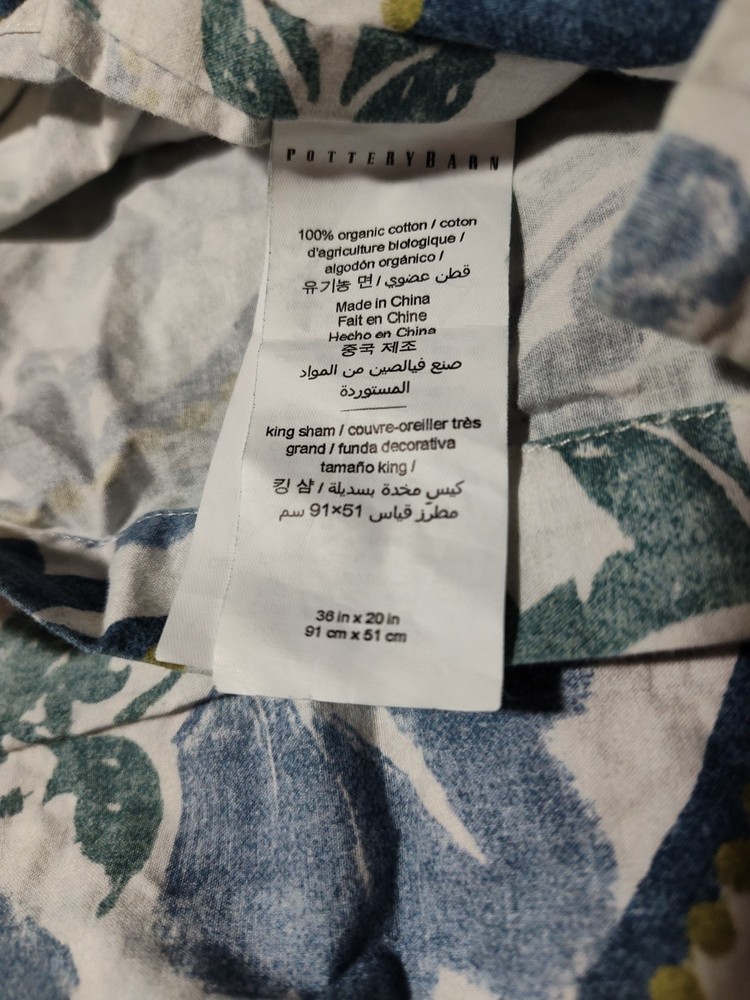 POTTERYBARN
100% organic cotton / coton
d'agriculture biologique /
algodón orgánico /
유기농 면 / قطن عضوي
Made in China
Fait en Chine
Hecho en China
중국 제조
صنع فيالصين من المواد
المستوردة
king sham / couvre-oreiller très
grand / funda decorativa
tamaño king /
킹 샴 / كيس مخدة بسديلة
مطرّز قياس 51×91 سم
36 in x 20 in
91 cm x 51 cm